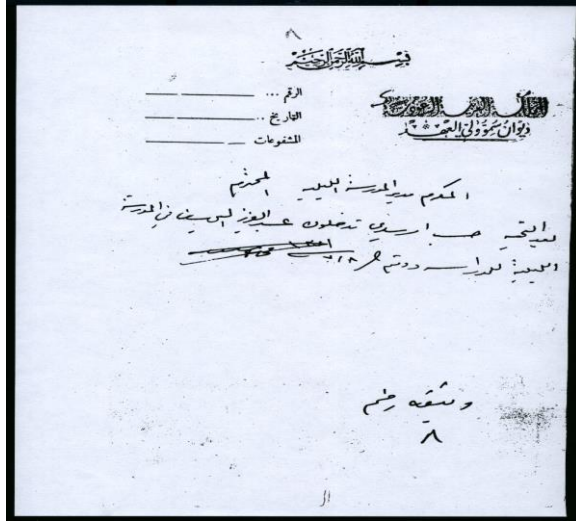 ٨
بسم الله الرحمن الرحيم
المملكة العربية السعودية
ديوان سمو ولي العهد
الرقم ...
التاريخ ...
المشفوعات
المكرم مدير المدرسة الليلية المحترم
بعد التحية تدخلون عبد العزيز في المدرسة
الليلية للدراسه ودمتم
وثيقه رقم
٨